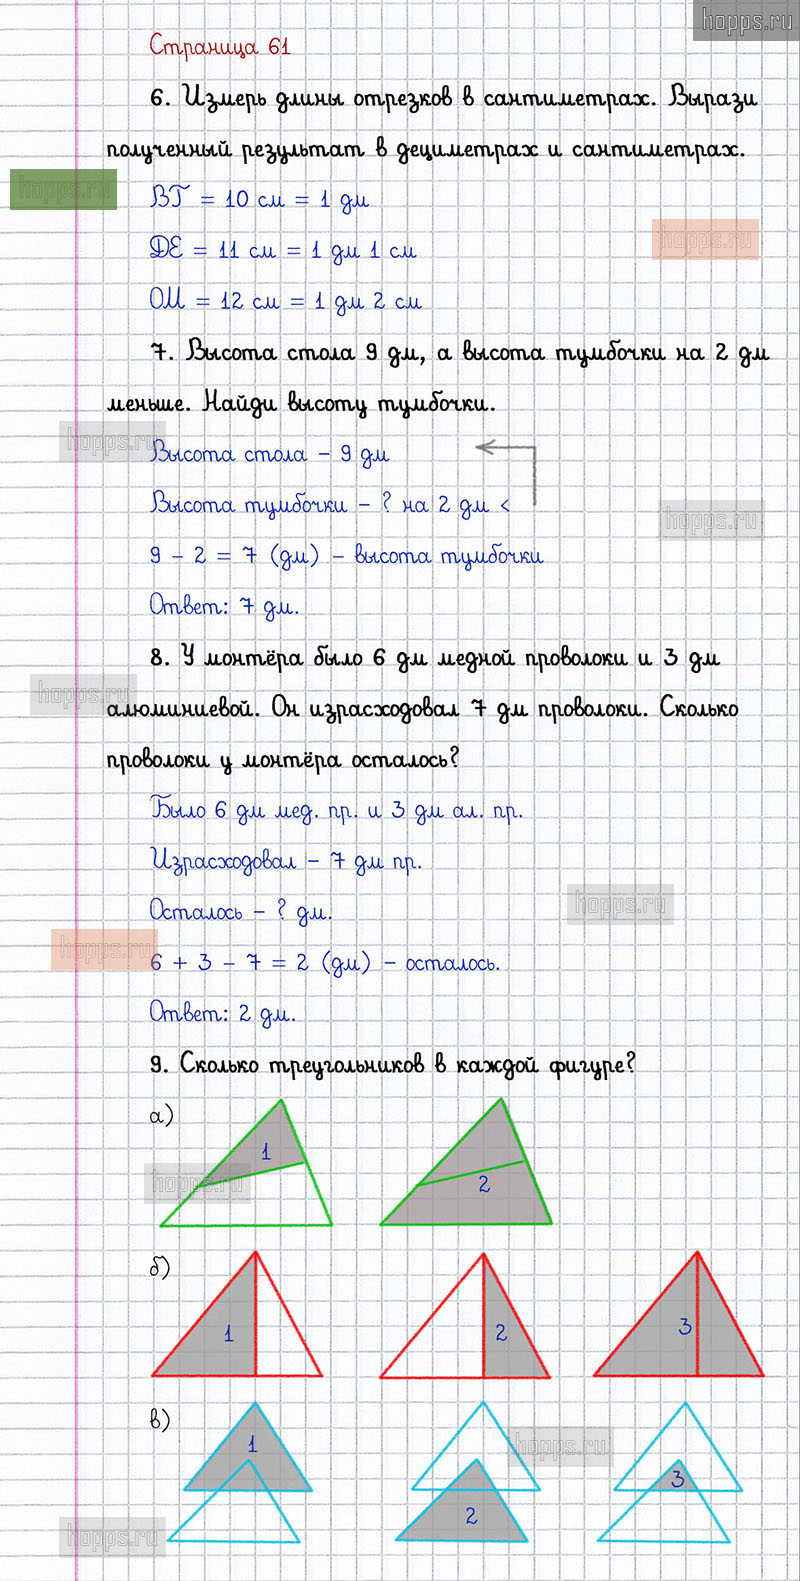 hopps.ru
Страница 61
6. Измерь длины отрезков в сантиметрах. Вырази
полученный результат в дециметрах и сантиметрах.
hopps.ru
ВТ = 10 см = 1 дм
hopps.ru
DE = 11 см = 1 дм 1 см
ОМ = 12 см = 1 дм 2 см
7. Высота стола 9 дм, а высота тумбочки на 2 дм
меньше. Найди высоту тумбочки.
hopps.ru
Высота стола – 9 дм
Высота тумбочки – ? на 2 дм <
hopps.ru
9 – 2 = 7 (дм) – высота тумбочки
Ответ: 7 дм.
8. У монтёра было 6 дм медной проволоки и 3 дм
hopps.ru
алюминиевой. Он израсходовал 7 дм проволоки. Сколько
проволоки у монтёра осталось?
Было 6 дм мед. пр. и 3 дм ал. пр.
Израсходовал – 7 дм пр.
hopps.ru
Осталось – ? дм.
hopps.ru
6 + 3 – 7 = 2 (дм) – осталось.
Ответ: 2 дм.
9. Сколько треугольников в каждой фигуре?
а)
1
2
hopps.ru
б)
1
2
3
в)
1
2
3
hopps.ru
hopps.ru